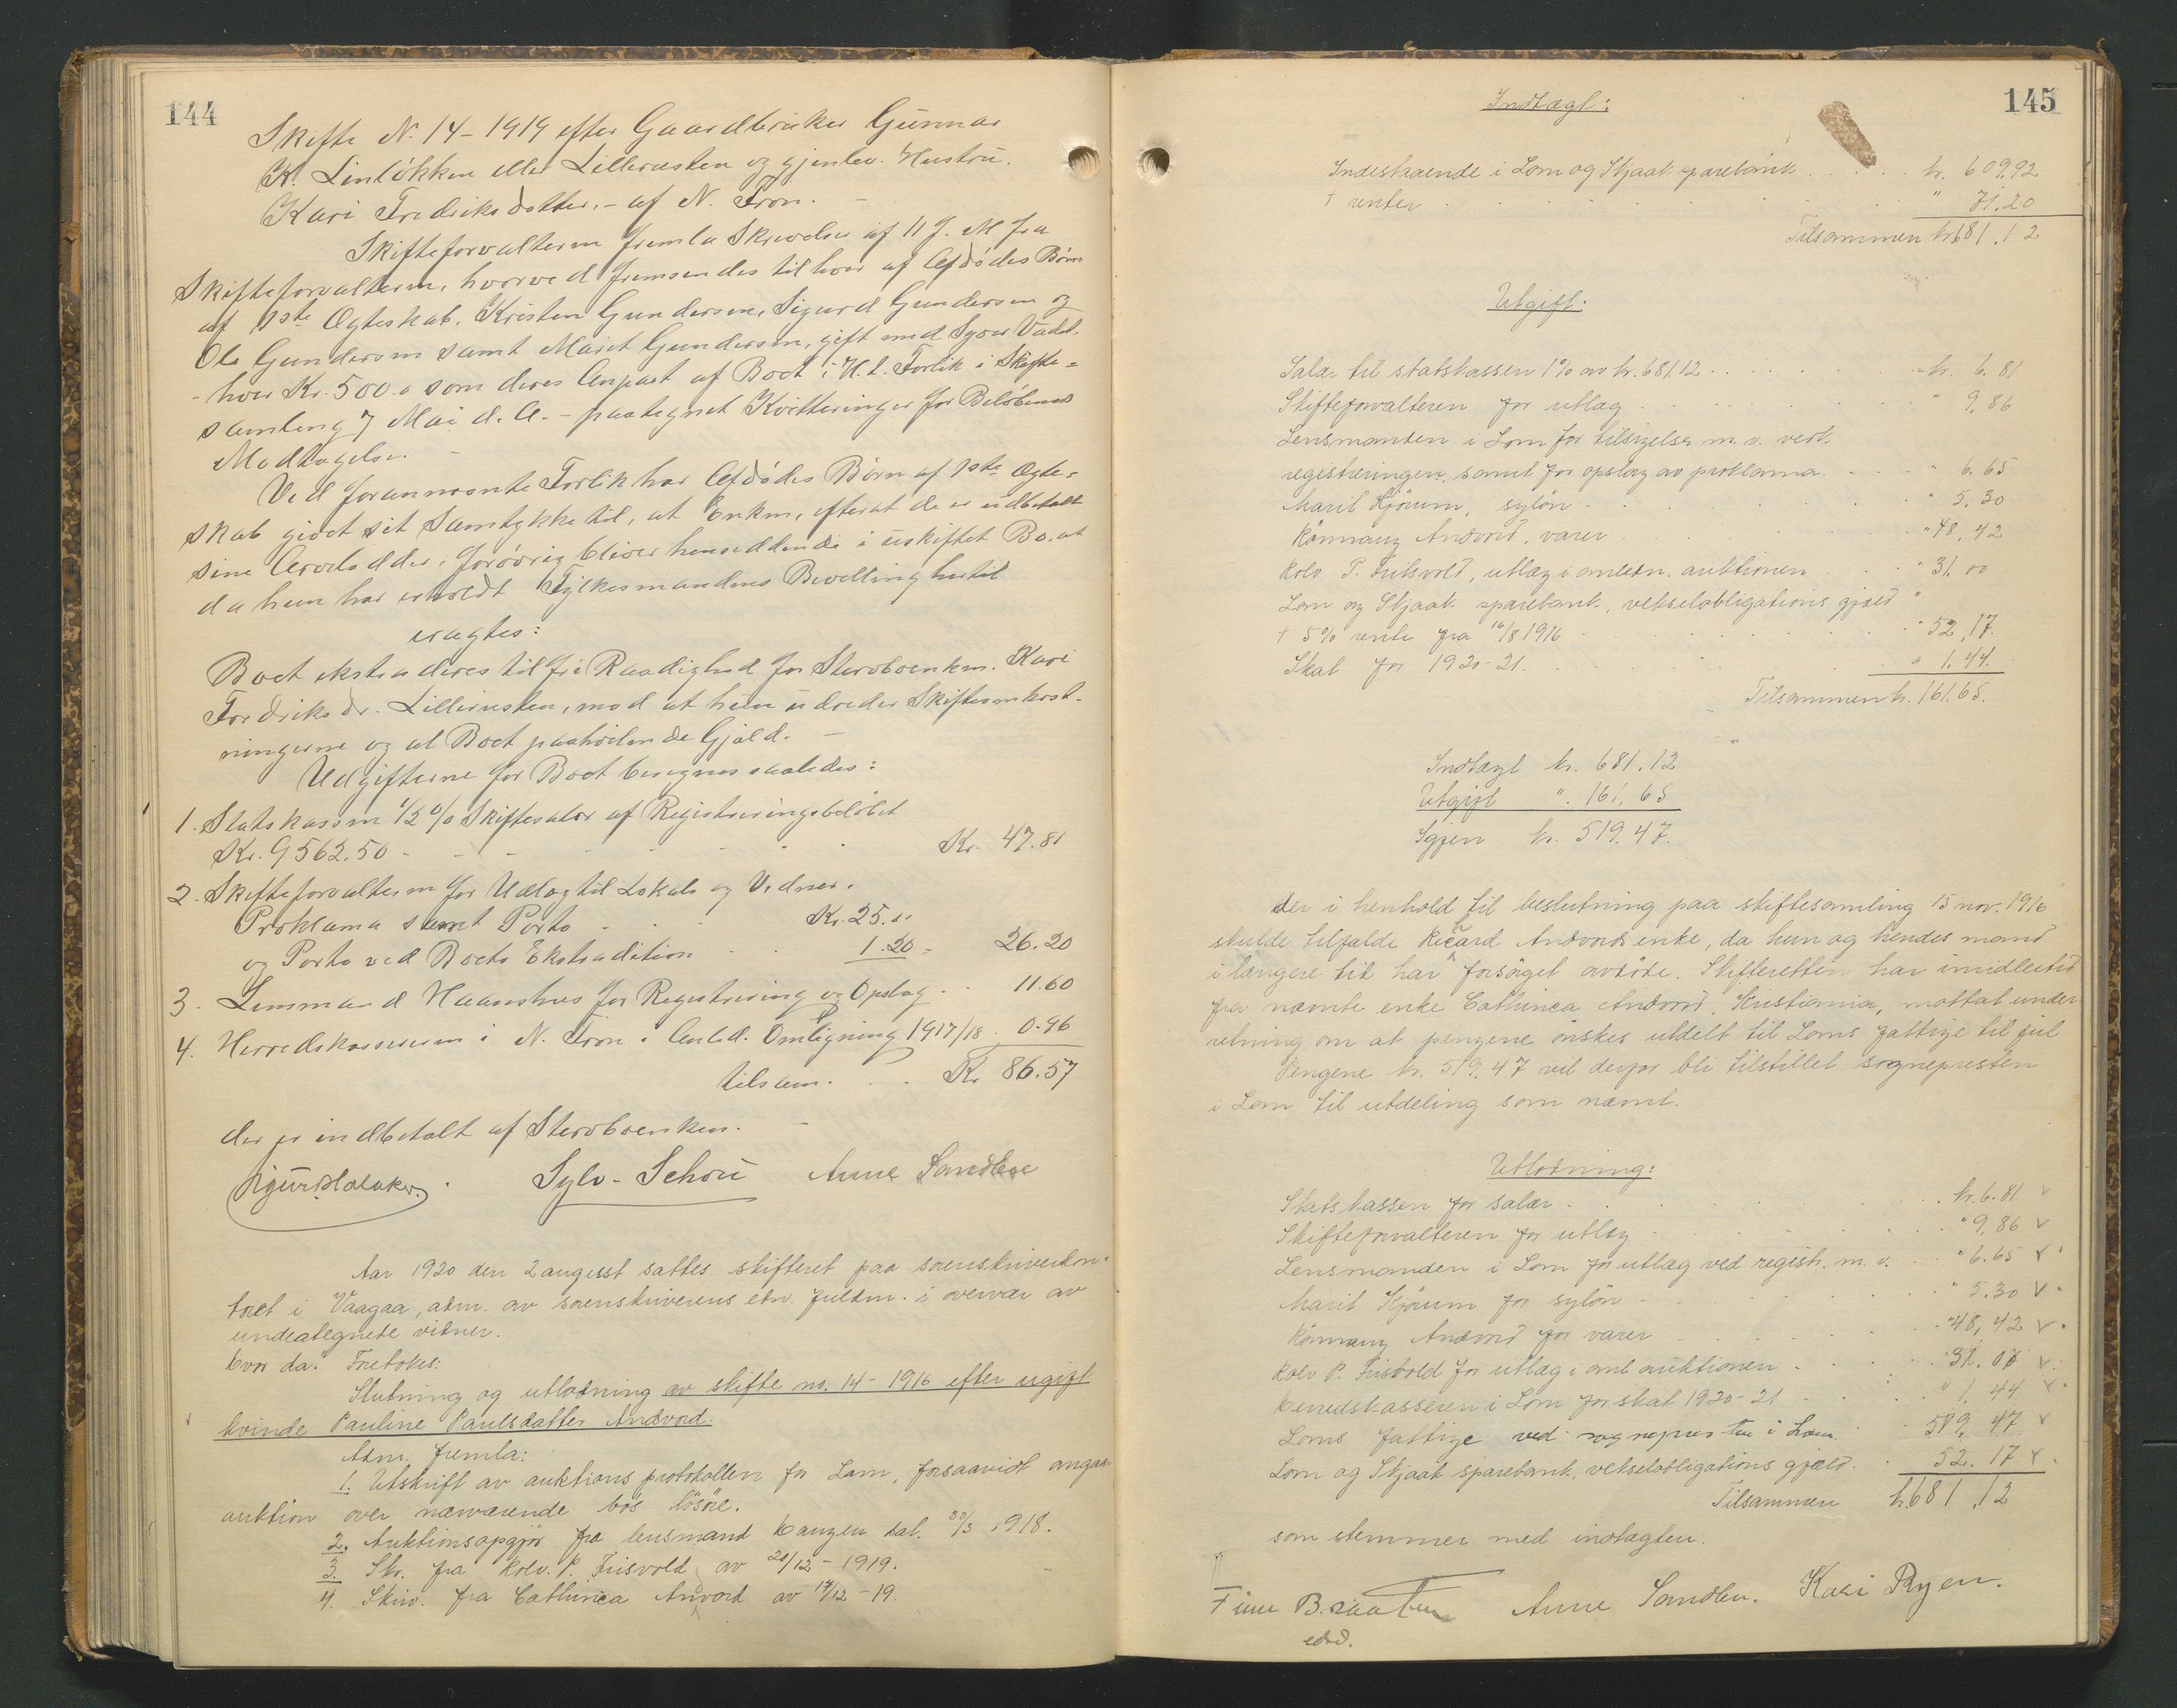 144
Skifte N. 14 - 1919 efter Gaardbruker Gunnar
K. Linløkken eller Lillerusten og gjenlev. Hustru.
Kari Fredriksdotter. - af N. Fron. -
Skifteforvalteren fremla Skrivelse af 11 f. M fra
Skifteforvalteren, hvorved fremsendes til hver af Afdødes Børn
af 1ste Ægteskab. Kristen Gundersen, Sigurd Gundersen og
Ole Gundersen samt Marit Gundersen, gift med Syver
- hver Kr. 500.- som deres Anpart af Boet i H. t. Forlik i Skifte=
samling 7 Mai d. A. - paategnet Kvitteringer for Beløbenes
Modtagelse. -
Ved forannævnte Forlik har Afdødes Børn af 1ste Ægte=
skab givet sit Samtykke til, at Enken, efterat de er udbetalt
sine Arvelodder, forøvrig bliver hensiddende i uskiftet Bo, at
da hun har erholdt Fylkesmandens Bevilling hertil
eragtes:
Boet ekstraderes til fri Raadighed for Stervboenken. Kari
Fredriksdr. Lillerusten, mod at hun udreder Skifteomkost-
ningerne og al Boet paahvilende Gjæld. -
Udgifterne for Boet beregnes saaledes:
1. Statskassen 1/2 % Skiftesalær af Registreringsbeløbet
Kr. 9562.50 - - - - Kr. 47.81
2. Skifteforvalteren for Udlæg til Lokale og Vidner.
Proklama samt Porto - Kr. 25.00
og Porto ved Boets Ekstradition - 1.20 = 26.20
3. Lensmand Haanshus for Registrering og Opslag - 11.60
4. Herredskassereren i N. Fron i Anled. Omligning 1917/18 . 0.96
tilsam. . . Kr 86.57
der er indbetalt af Stervboenken. -
Sylv. Schou Anne Sandboe
Aar 1920 den 2 august sattes skifteret paa sorenskriverkon-
toret i Vaagaa, adm. av sorenskriverens edsv. fuldm. i overvær av
undertegnede vidner.
Hvor da: Foretokes:
Slutning og utlodning av skifte no. 14 - 1916 efter ugift
kvinde Pauline Paulsdatter Andvord.
Adm. fremla:
1. Utskrift av auktionsprotokollen for Lom, forsaavidt angaar
auktion over nærværende bos løsøre.
2. Auktionsopgjør fra lensmand Hauzen dat. 30/3 1918.
3. Skr. fra Kolv. P. Frisvold av 20/12 - 1919.
4. Skriv. fra Cathinca Anvord av 14/12 - 19.
145
Indtægt:
Indestaaende i Lom og Skjaak sparebank . . . . kr. 609.92
+ renter . . . . " 71.20
Tilsammen kr. 681.12
Utgift:
Salær til statskassen 1% av kr. 681.12 . . . . kr. 6.81
Skifteforvalteren for utlæg . . . . " 9,86
Lensmanden i Lom for tilsigelser m. v. vedr.
registreringen, samt for opslag av proklama . . " 6.65
Marit Kjörum, sylön . . . . " 5.30
Rönnaug Andvord, varer . . . " 48,42
Kolv P. Frisvold, utlæg i anledn. auktionen . . " 31.00
Lom og Skjaak sparebank, vekselobligations gjæld "
+ 5% rente fra 16/8 1916 . . . . " 52,17.
Skat for 1920-21. . . . . " 1.44.
Tilsammen kr. 161.65.
Indtægt kr. 681.12
Utgift " 161,65
Igjen kr. 519.47.
der i henhold til beslutning paa skiftesamling 15 nov. 1916
skulde tilfalde Ricard Andvords enke, da hun og hendes mand
i længere tid har forsørget avdöde. Skifteretten har imidlertid
fra nævnte enke Cathinca Andvord, Kristiania, mottat under
retning om at pengene önskes utdelt til Loms fattige til jul
Pengene kr. 519.47 vil derfor bli tilstillet sognepresten
i Lom til utdeling som nævnt.
Utlodning:
Statskassen for salær . . . . kr. 6.81 v
Skifteforvalteren for utlæg . . . . " 9,86 v
Lensmanden i Lom for utlæg ved registr. m. v. . . " 6.65 v
Marit Kjörum for sylön . . . . " 5.30 v
Rönnaug Andvord for varer . . . . " 48,42 v
Kolv P. Frisvold for utlæg i anl. auktionen . . . " 31.00 v
Herredskasseren i Lom for skat 1920-21 . . . " 1.44 v
Loms fattige ved sognepresten i Lom . . 519,47 v
Lom og Skjaak sparebank, vekselobligations gjæld . . 52.17 v
Tilsammen kr. 681,12
som stemmer med indtægten.
Finn Braaten Anne Sandbu. Kari Ryen.
edsv.